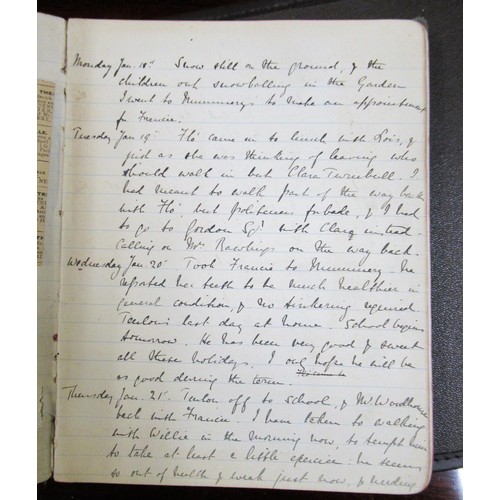 Monday Jan. 18th Snow still on the ground, & the
children out snowballing in the Garden
I went to Mummerys to make an appointment
for Francie.
Tuesday Jan 19th Flo came in to lunch with Lois, &
just as she was thinking of leaving who
should walk in but Clara Turnbull. I
had meant to walk part of the way back
with Flo, but politeness forbade, & I had
to go to Gordon Sq. with Clara instead.
Calling on Mrs Rawlings on the way back.
Wednesday Jan. 20th Took Francie to Mummery. He
reported her teeth to be much healthier in
general condition, & no tinkering required.
last day at home. School begins
tomorrow. He has been very good & sweet
all these holidays. I only hope he will be
as good during the term.
Thursday Jan. 21st off to school, & W. Woodhouse
back with Francie. I have taken to walking
with Willie in the morning now, to tempt him
to take at least a little exercise. He seems
so out of health & weak just now, & needing